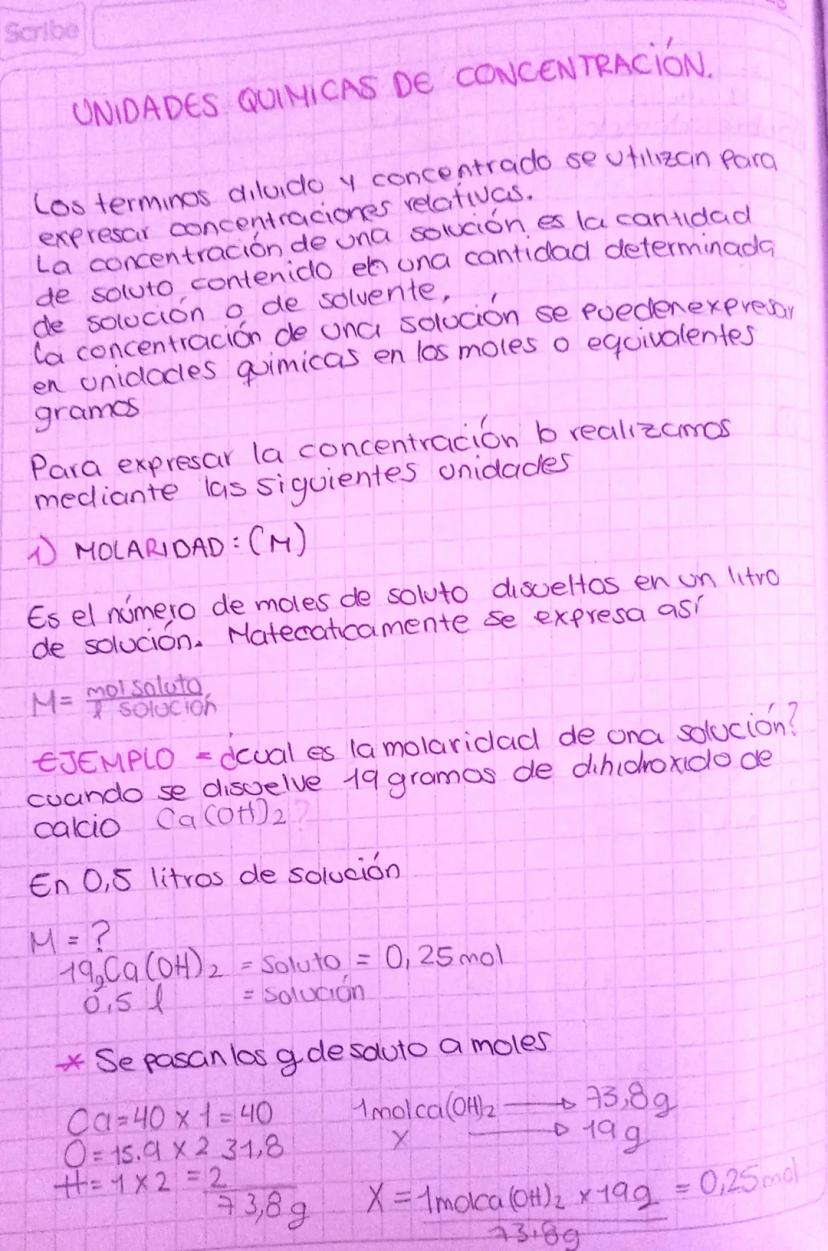 Scribe
UNIDADES QUIMICAS DE CONCENTRACIÓN.
Los terminos diluido y concentrado se utilizan para
expresar concentraciones relativas.
La concentración de una solución es la cantidad
de soluto contenido en una cantidad determinada
de solución o de solvente.
La concentración de una solución se pueden expresar
en unidades quimicas en los moles o equivalentes
gramos
Para expresar la concentración lo realizamos
mediante las siguientes unidades
1) MOLARIDAD: (M)
Es el número de moles de soluto disueltos en un litro
de solución. Matecaticamente se expresa así
M = mol soluto
l solución
EJEMPLO = ¿cual es la molaridad de una solución?
cuando se disuelve 19 gramos de dihidroxido de
calcio Ca(OH)2?
En 0,5 litros de solución
M = ?
19g Ca(OH)2 = soluto = 0,25 mol
0,5 l = solución
* Se pasan los g de soluto a moles
Ca = 40 x 1 = 40 1 mol ca(OH)2 → 73,8 g
O = 15.9 x 2 31,8 X → 19 g
H = 1 x 2 = 2
73,8 g X = 1 mol ca(OH)2 x 19 g = 0,25 mol
73.8g